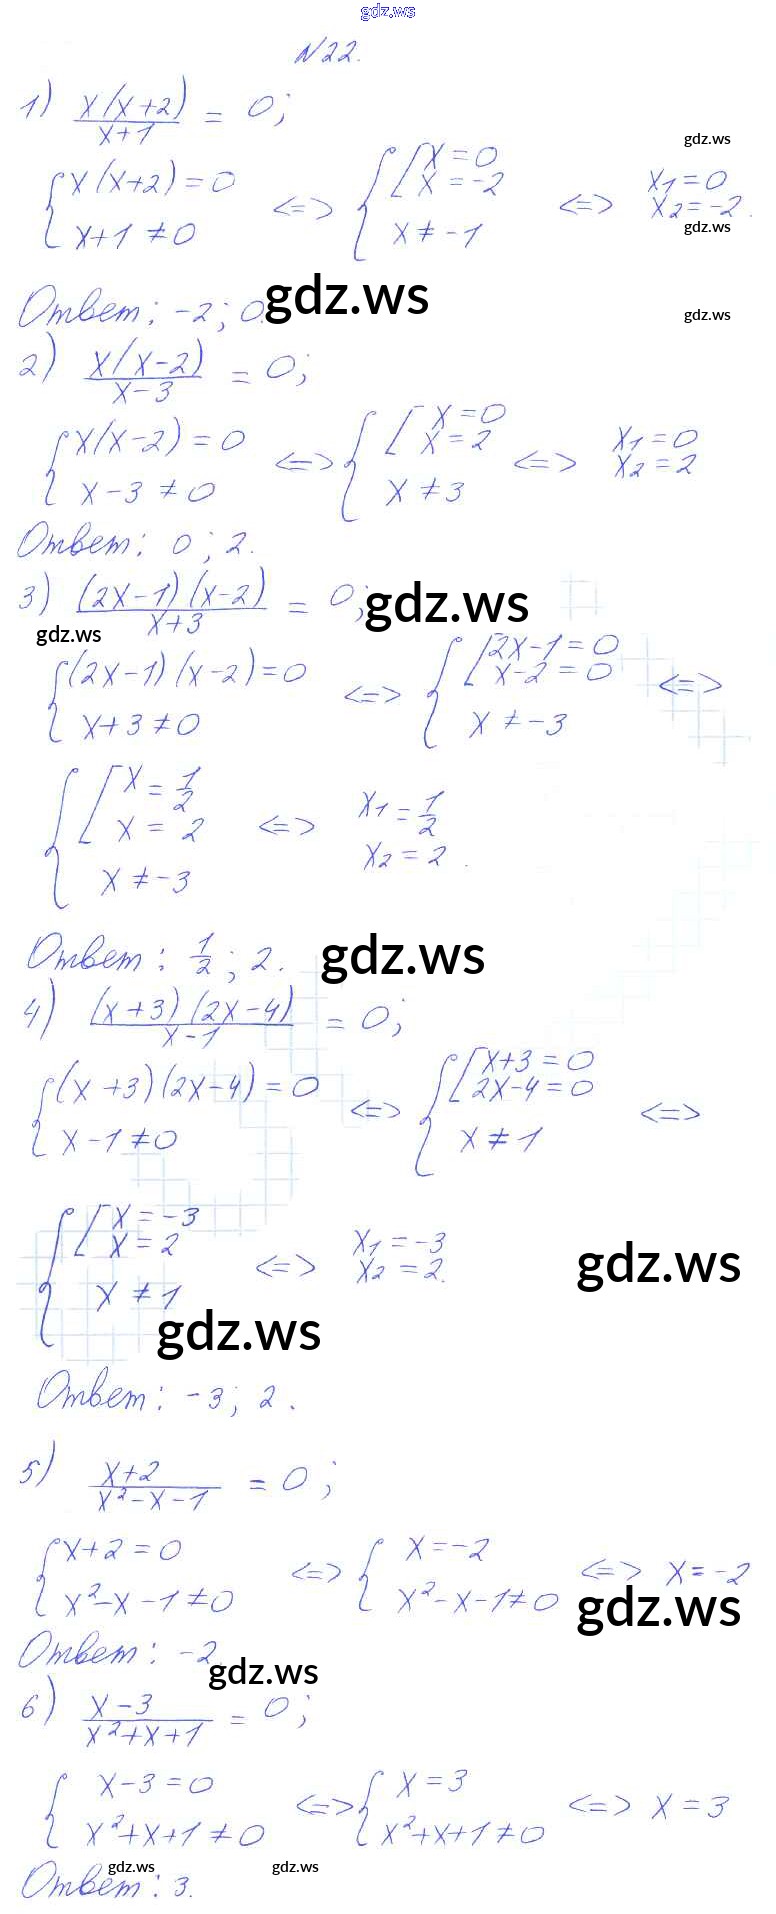 gdz.ws
N22.
1) x(x+2)/x+1 = 0;
gdz.ws
{ x(x+2)=0 <=> { [ x=0 <=> x1=0
x+1≠0 x=-2 x2=-2.
x≠-1
gdz.ws
Ответ: -2; 0.
gdz.ws
gdz.ws
2) x(x-2)/x-3 = 0;
{ x(x-2)=0 <=> { [ x=0 <=> x1=0
x-3≠0 x=2 x2=2
x≠3
Ответ: 0; 2.
3) (2x-1)(x-2)/x+3 = 0;
gdz.ws
gdz.ws
{ (2x-1)(x-2)=0 <=> { [ 2x-1=0 <=>
x+3≠0 x-2=0
x≠-3
{ [ x=1/2 <=> x1=1/2
x=2 x2=2.
x≠-3
Ответ: 1/2; 2.
gdz.ws
4) (x+3)(2x-4)/x-1 = 0;
{ (x+3)(2x-4)=0 <=> { [ x+3=0 <=>
x-1≠0 2x-4=0
x≠1
{ [ x=-3 <=> x1=-3
x=2 x2=2.
x≠1
gdz.ws
gdz.ws
Ответ: -3; 2.
5) x+2/x²-x-1 = 0;
{ x+2=0 <=> { x=-2 <=> x=-2
x²-x-1≠0 x²-x-1≠0
gdz.ws
Ответ: -2
gdz.ws
6) x-3/x²+x+1 = 0;
{ x-3=0 <=> { x=3 <=> x=3
x²+x+1≠0 x²+x+1≠0
gdz.ws
gdz.ws
Ответ: 3.